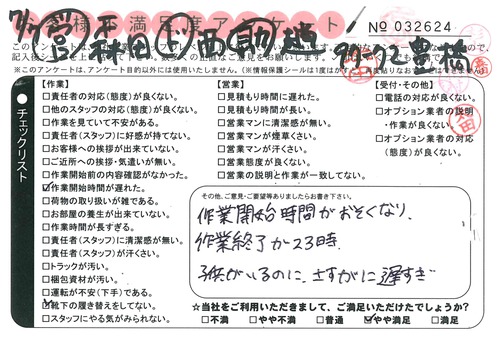 お客様不満足度アンケート
No 032624
チェックリスト
【作業】
□責任者の対応(態度)が良くない。
□他のスタッフの対応(態度)が良くない。
□作業を見ていて不安がある。
□責任者(スタッフ)に好感が持てない。
□お客様への挨拶が出来ていない。
□ご近所への挨拶・気遣いが無い。
□作業開始前の内容確認がなかった。
☑作業開始時間が遅れた。
□荷物の取り扱いが雑である。
□お部屋の養生が出来ていない。
□作業時間が長すぎる。
□責任者(スタッフ)に清潔感が無い。
□責任者(スタッフ)が汗くさい。
□トラックが汚い。
□梱包資材が汚い。
□運転が不安(下手)である。
☑靴下の履き替えをしてない。
□スタッフにやる気がみられない。
【営業】
□見積もり時間に遅れた。
□見積もり時間が長い。
□営業マンに清潔感が無い。
□営業マンが煙草くさい。
□営業マンが汗くさい。
□営業態度が良くない。
□営業の説明と作業が一致してない。
【受付・その他】
□電話の対応が良くない。
□オプション業者の説明
・作業が良くない。
□オプション業者の対応
(態度)が良くない。
その他、ご意見・ご要望等ありましたらお書き下さい。
作業開始時間がおそくなり、
作業終了が23時。
子供がいるのに、さすがに遅すぎ
☆当社をご利用いただきまして、ご満足いただけたでしょうか?
□不満 □やや不満 □普通 ☑やや満足 □満足